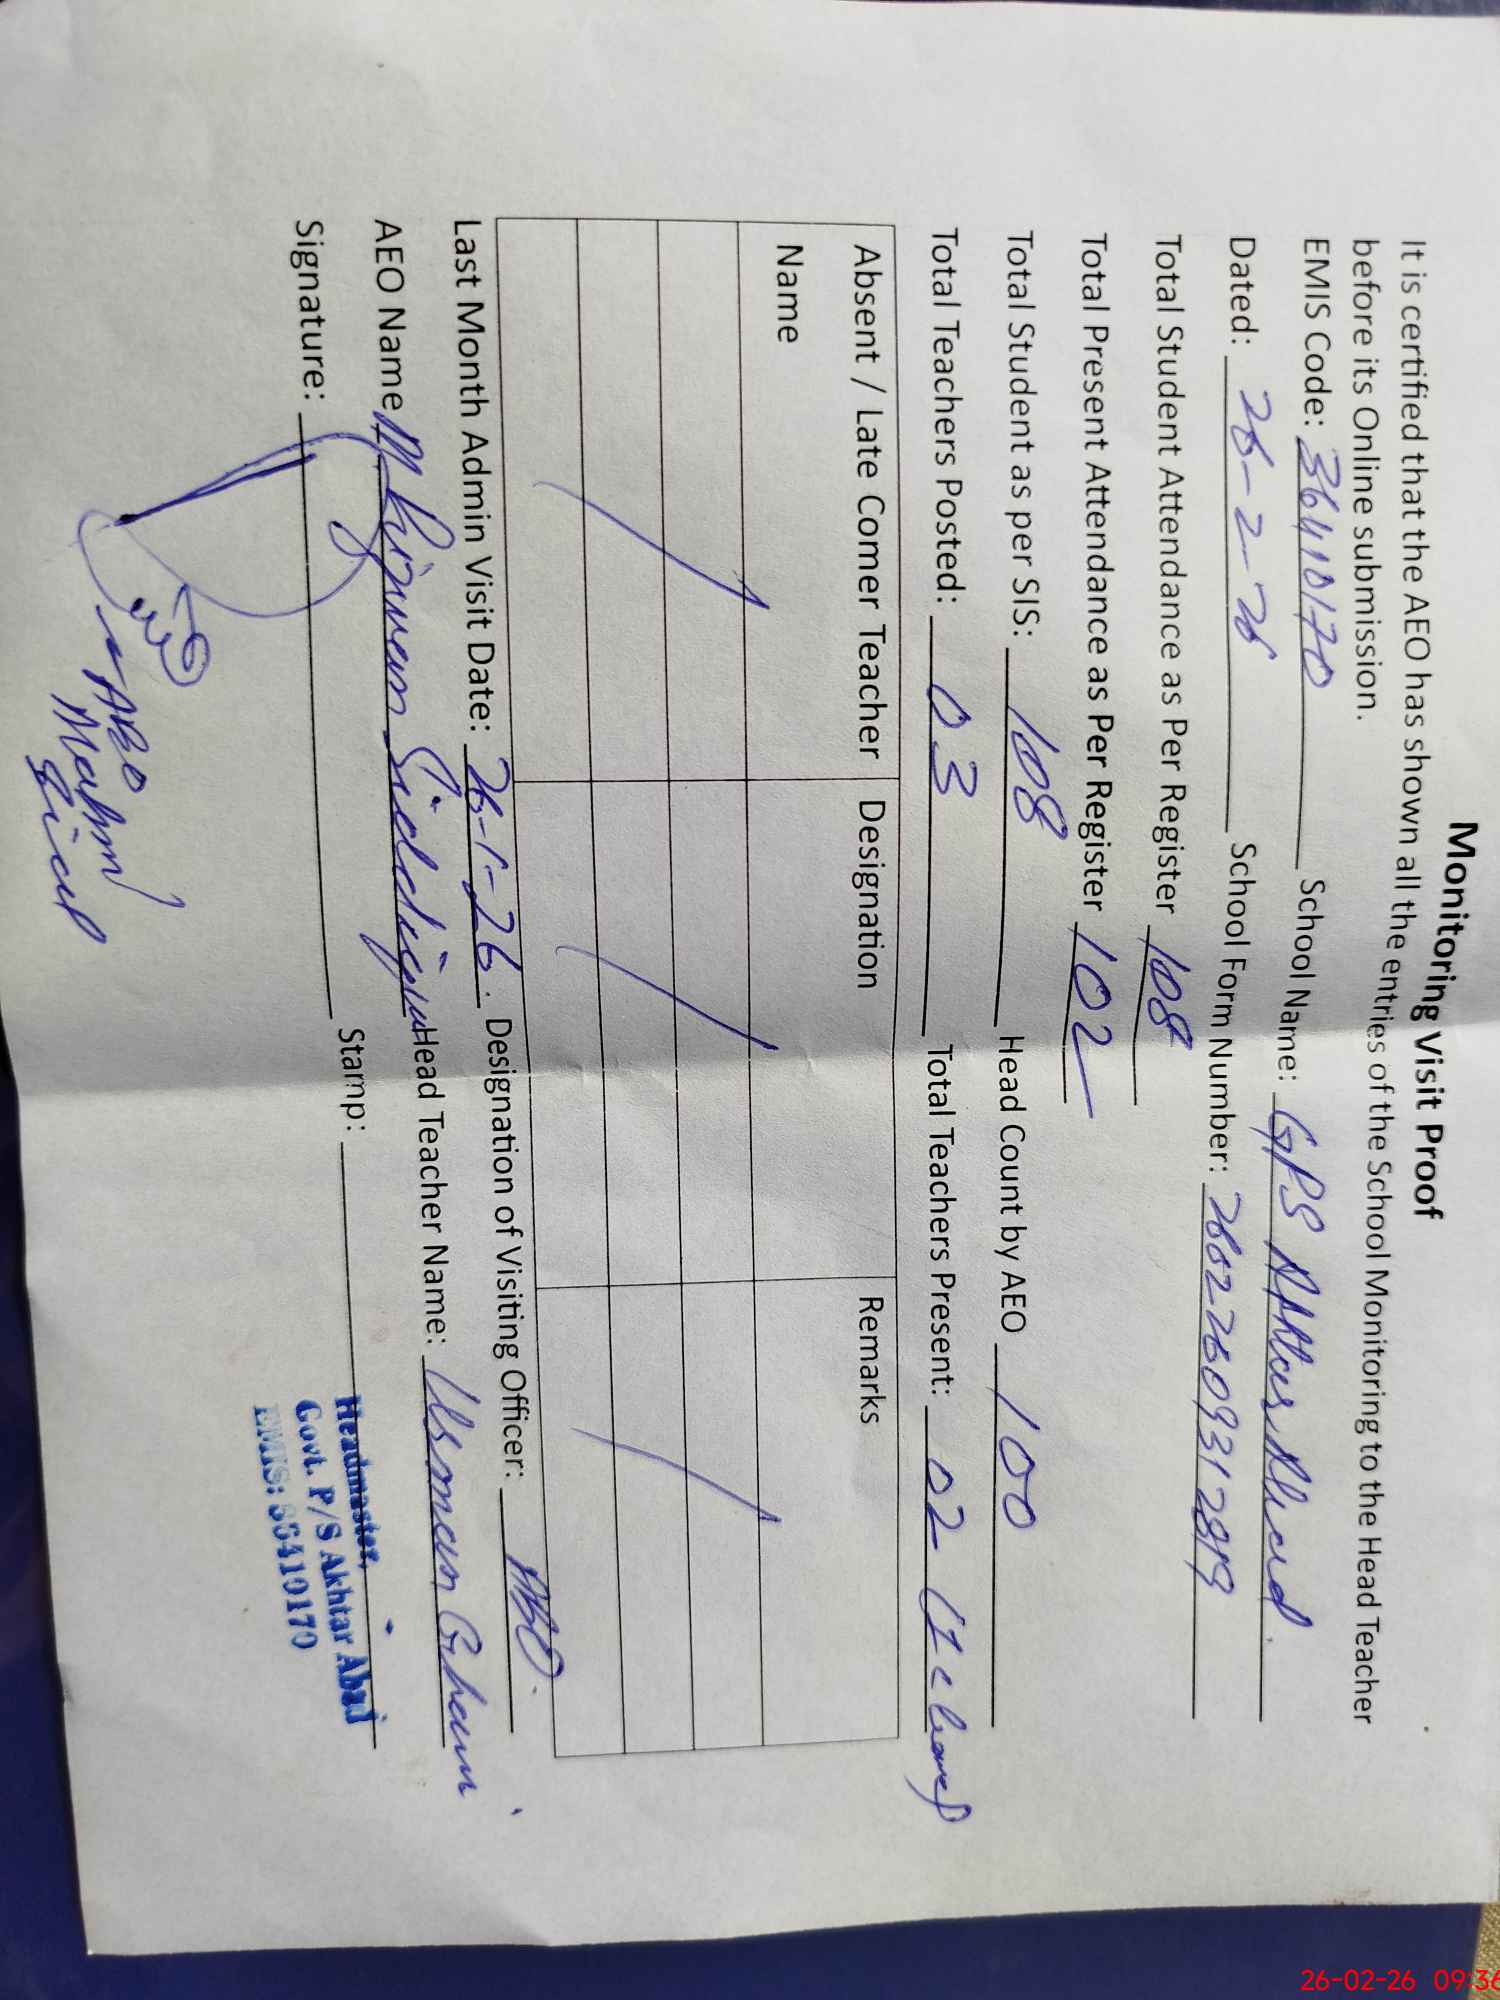 Monitoring Visit Proof
It is certified that the AEO has shown all the entries of the School Monitoring to the Head Teacher
before its Online submission.
EMIS Code: 36410170 School Name: GPS Akhtar Abad.
Dated: 26-2-26 School Form Number: 2602260931289
Total Student Attendance as Per Register 108
Total Present Attendance as Per Register 102
Total Student as per SIS: 108 Head Count by AEO 100
Total Teachers Posted: 03 Total Teachers Present: 02
Absent / Late Comer Teacher Name Designation Remarks
Last Month Admin Visit Date: 26-1-26. Designation of Visiting Officer: AEO.
AEO Name Siddique Head Teacher Name: Usman Ghani
Signature: Stamp:
Headmaster,
Govt. P/S Akhtar Abad
EMIS: 36410170
AEO
26-02-26 09:36